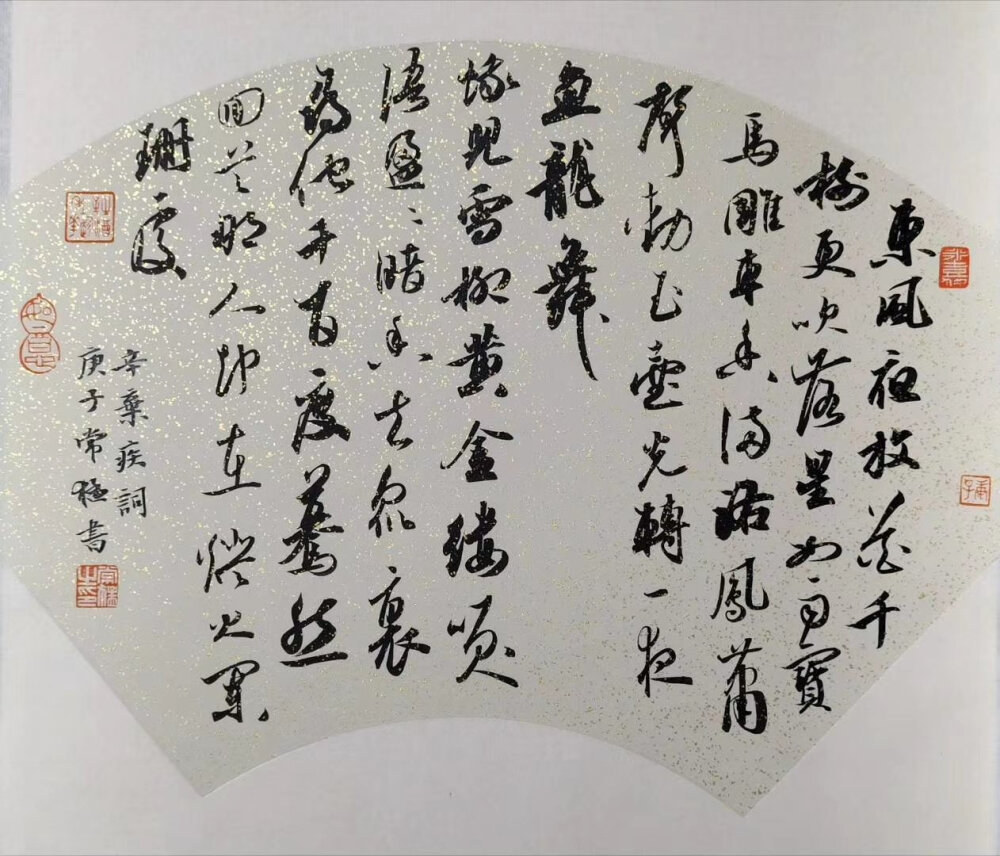 東風夜放花千
樹更吹落星如雨寶
馬雕車香滿路鳳蕭
聲動玉壺光轉一夜
魚龍舞
蛾兒雪柳黃金縷笑
語盈〻暗香去眾裏
為他千百度驀然
回首那人却在燈火闌
珊處
辛棄疾詞
庚子常極書
庚子